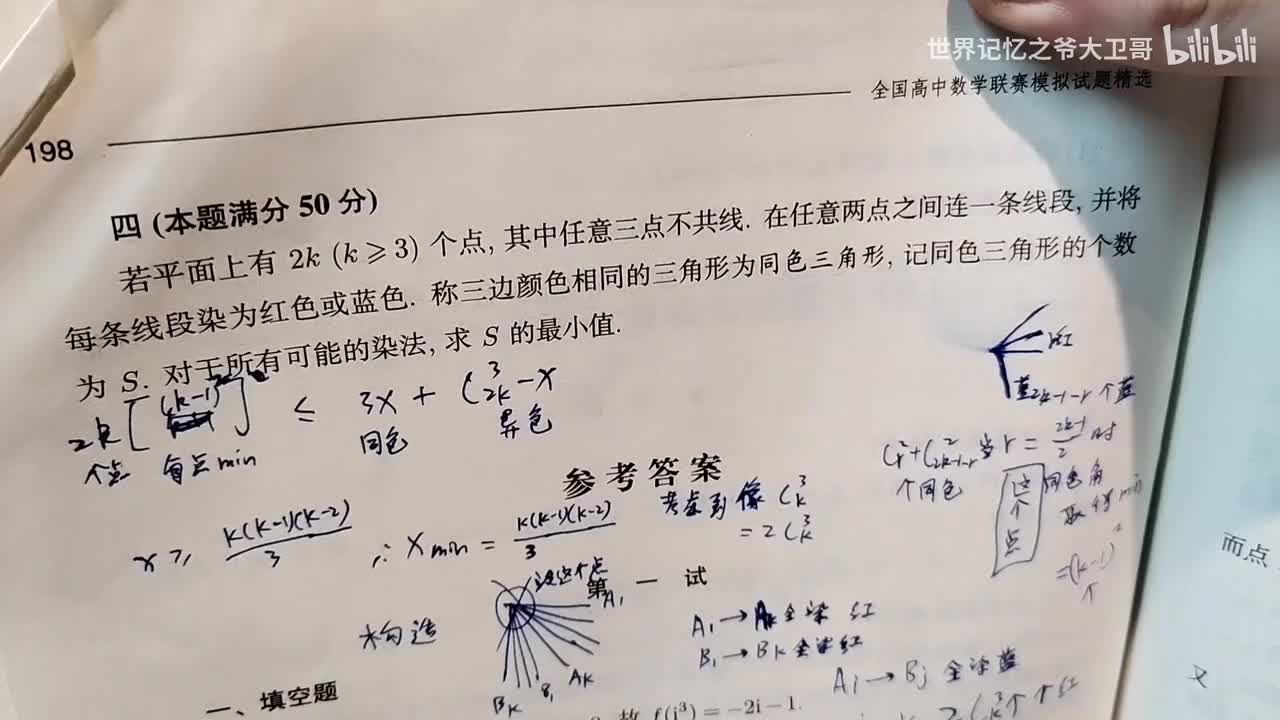 世界记忆之爷大卫哥 bilibili
全国高中数学联赛模拟试题精选
198
四 (本题满分 50 分)
若平面上有 2k (k ⩾ 3) 个点, 其中任意三点不共线. 在任意两点之间连一条线段, 并将
每条线段染为红色或蓝色. 称三边颜色相同的三角形为同色三角形, 记同色三角形的个数
为 S. 对于所有可能的染法, 求 S 的最小值.
2k[(k-1)²] ≤ 3x + C³₂ₖ - x
个点 每点min 同色 异色
r红
蓝2k-1-r个蓝
C²ᵣ+C²₂ₖ₋₁₋ᵣ当r=(2k-1)/2时
个同色 这个点 同色角
取得min
=(k-1)²
个
参考答案
x ⩾ k(k-1)(k-2)/3 ∴ Xmin = k(k-1)(k-2)/3
考虑到像 C³ₖ
=2C³ₖ
第一试
构造
这个点
A₁
Aₖ
B₁
Bₖ
A₁→Aₖ全染红
B₁→Bₖ全染红
Ai→Bj全染蓝
2C³ₖ个
一、填空题
故 f(i³) = -2i - 1.
而点
又